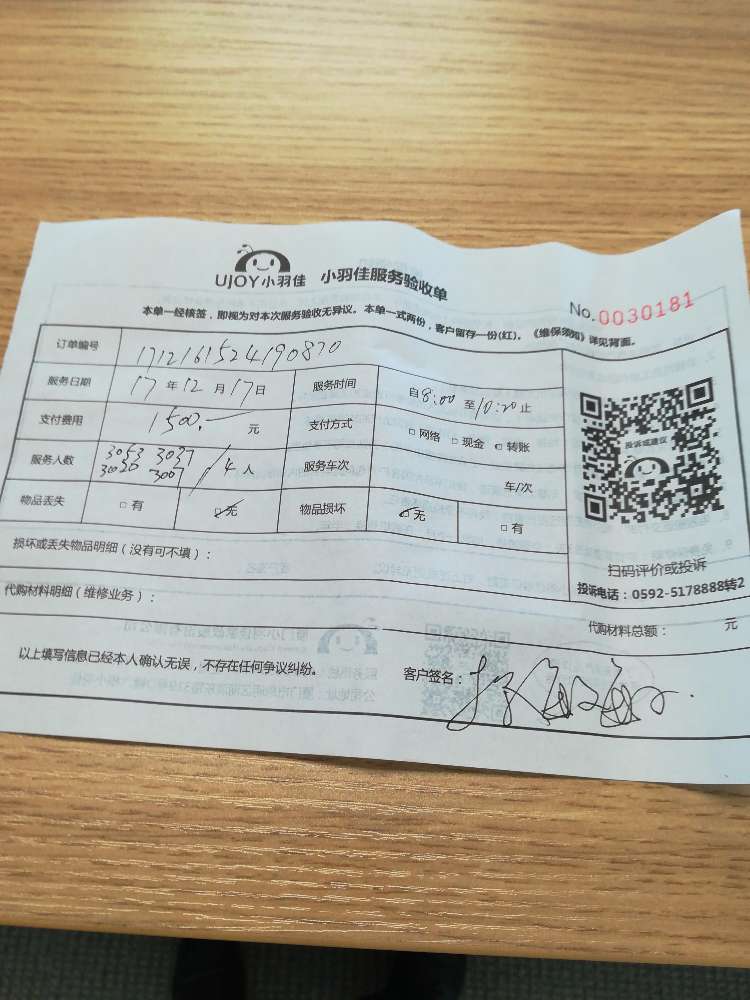 UJOY小羽佳 小羽佳服务验收单
No.0030181
本单一经核签，即视为对本次服务验收无异议。本单一式两份，客户留存一份(红)。《维保须知》详见背面。
订单编号 1712161524190870
服务日期 17年12月17日 服务时间 自8:00至10:20止
支付费用 1500.— 元 支付方式 □网络 □现金 □转账
服务人数 3053 3037 3020 3007 / 4人 服务车次 车/次
物品丢失 □有 ☑无 物品损坏 ☑无 □有
投诉或建议
扫码评价或投诉
投诉电话：0592-5178888转2
损坏或丢失物品明细（没有可不填）：
代购材料明细（维修业务）：
代购材料总额： 元
以上填写信息已经本人确认无误，不存在任何争议纠纷。 客户签名：